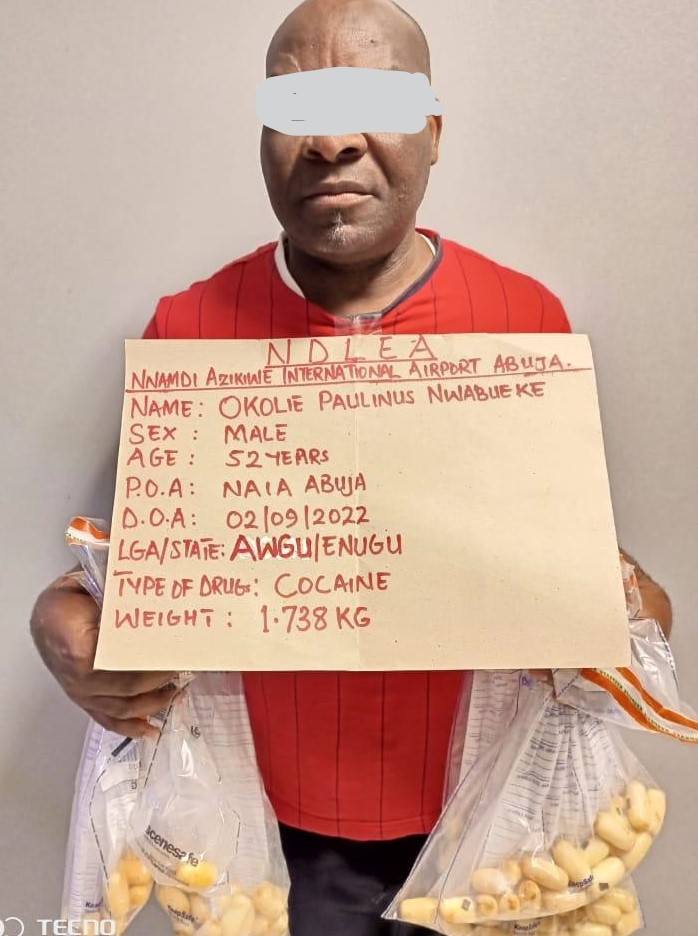 NDLEA
NNAMDI AZIKIWE INTERNATIONAL AIRPORT ABUJA.
NAME: OKOLIE PAULINUS NWABUEKE
SEX : MALE
AGE : 52 YEARS
P.O.A: NAIA ABUJA
D.O.A: 02/09/2022
LGA/STATE: AWGU/ENUGU
TYPE OF DRUGS: COCAINE
WEIGHT : 1.738 KG
scenesafe
KeepSafe
KeepSafe
TECNO